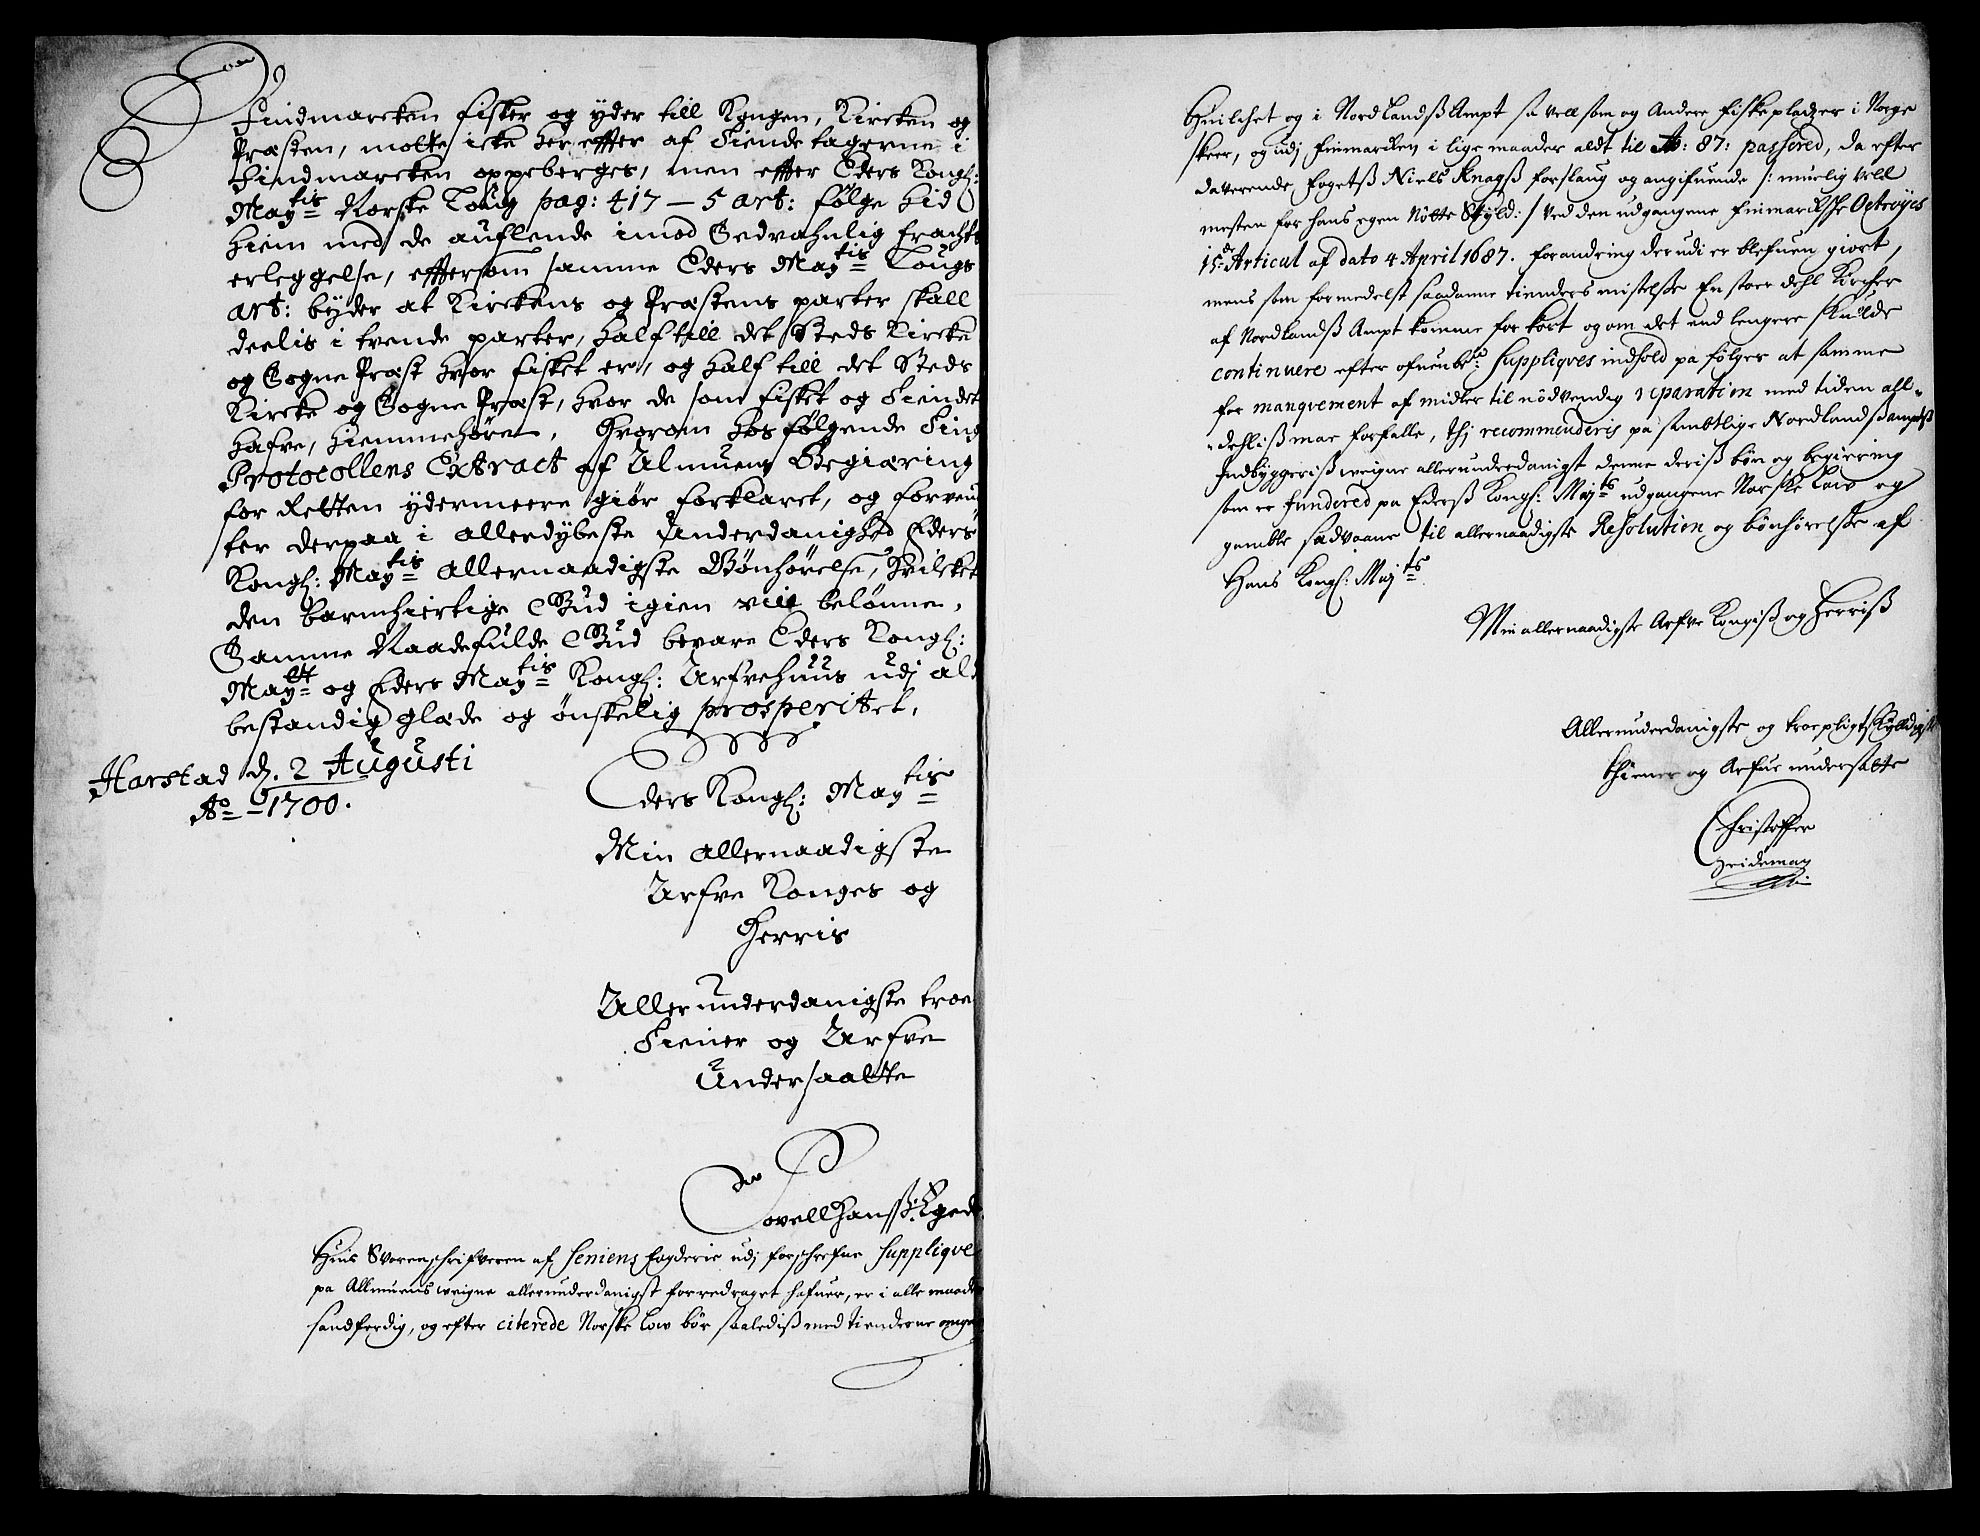 Findmarcken fisker og yder till Kongen, Kircken og
Præsten, motte icke her effter af Tiendetagerne i
Findmarcken oppeberges, men effter Eders Kongl:
May:tis Norske Loug pag: 417 — 5 art: følge hid
hiem med de auflende imod Sedvahnlig fracht
erleggelse, effter som samme Eders May:tis Lougs
art: byder at Kirckens og Præstens parter skall
deelis i tvende parter, half till det Steds Kircke
og Sogne Præst hvor fisket er, og half till det Steds
Kircke og Sogne Præst, hvor de som fisket og Tiendet
hafve, hiemmehører, Hvorom hos følgende Ting
Protocollens Extract af Almuens Begiæring
for Retten ydermeere giør forklaret, og forven
ter derpaa i allerdybeste Underdanighed Eders
Kongl: May:tis allernaadigste Bønhørelse, hvilcket
den barmhiertige Gud igien vill belønne,
Samme Naadefulde Gud bevare Eders Kongl:
May:tt og Eders May:tis Kongl: Arfvehuus udj al
bestandig glæde og ønskelig prosperitet.
Harstad d. 2 Augusti
Ao 1700.
Eders Kongl: May:tis
Min allernaadigste
Arfve Konges og
Herris
Allerunderdanigste troe
Tiener og Arfve
Undersaatte
Povell Hansß:
Huis Sorenschrifveren af Seniens fogderie udj forschrefne Supplique
pa Allmuens weigne allerunderdanigst forredraget hafuer, er i alle maader
sandferdig, og efter citerede Norske low bør saalediß med tienderne
Huilchet og i Nordlandß Ampt sa vell som og Andere fiskepladzer i Norge
skeer, og udj finmarcken i lige maader aldt til Ao: 87: passered, da efter
daverende fogetß Niels Knagß forslaug og angifuende /: muelig vell
mesten for hans egen Nøtte Skyld: / Ved den udgangene finmarckske Octroyes
15de Articul af dato 4 April 1687. forandring der udi er blefuen giort,
mens som formedelst saadanne tienders mistelse En stoer dehl Kircher
af Nordlandß Ampt komme for kort og om det end lengere skulde
continuere efter ofuenbte: Suppliqves indhold pa følger at samme
for manqvement af midler til nødvendig reparation med tiden all-
-dehliß mae forfalle, thj recommenderis pa samtlige Nordlandß amptß
Indbyggeriß weigne allerunderdanigst denne deriß bøn og begiering
som er fundered pa Ederß Kongl: Mayts udgangene Norske Low og
gamble sædvaane til allernaadigste Resolution og bønhørelse af
Hans Kongl: Mayts
Min allernaadigste Arfve Kongiß og Herriß
Allerunderdanigste og troepligtskylldigste
thiener og Arfue undersatte
Christoffer
Heideman